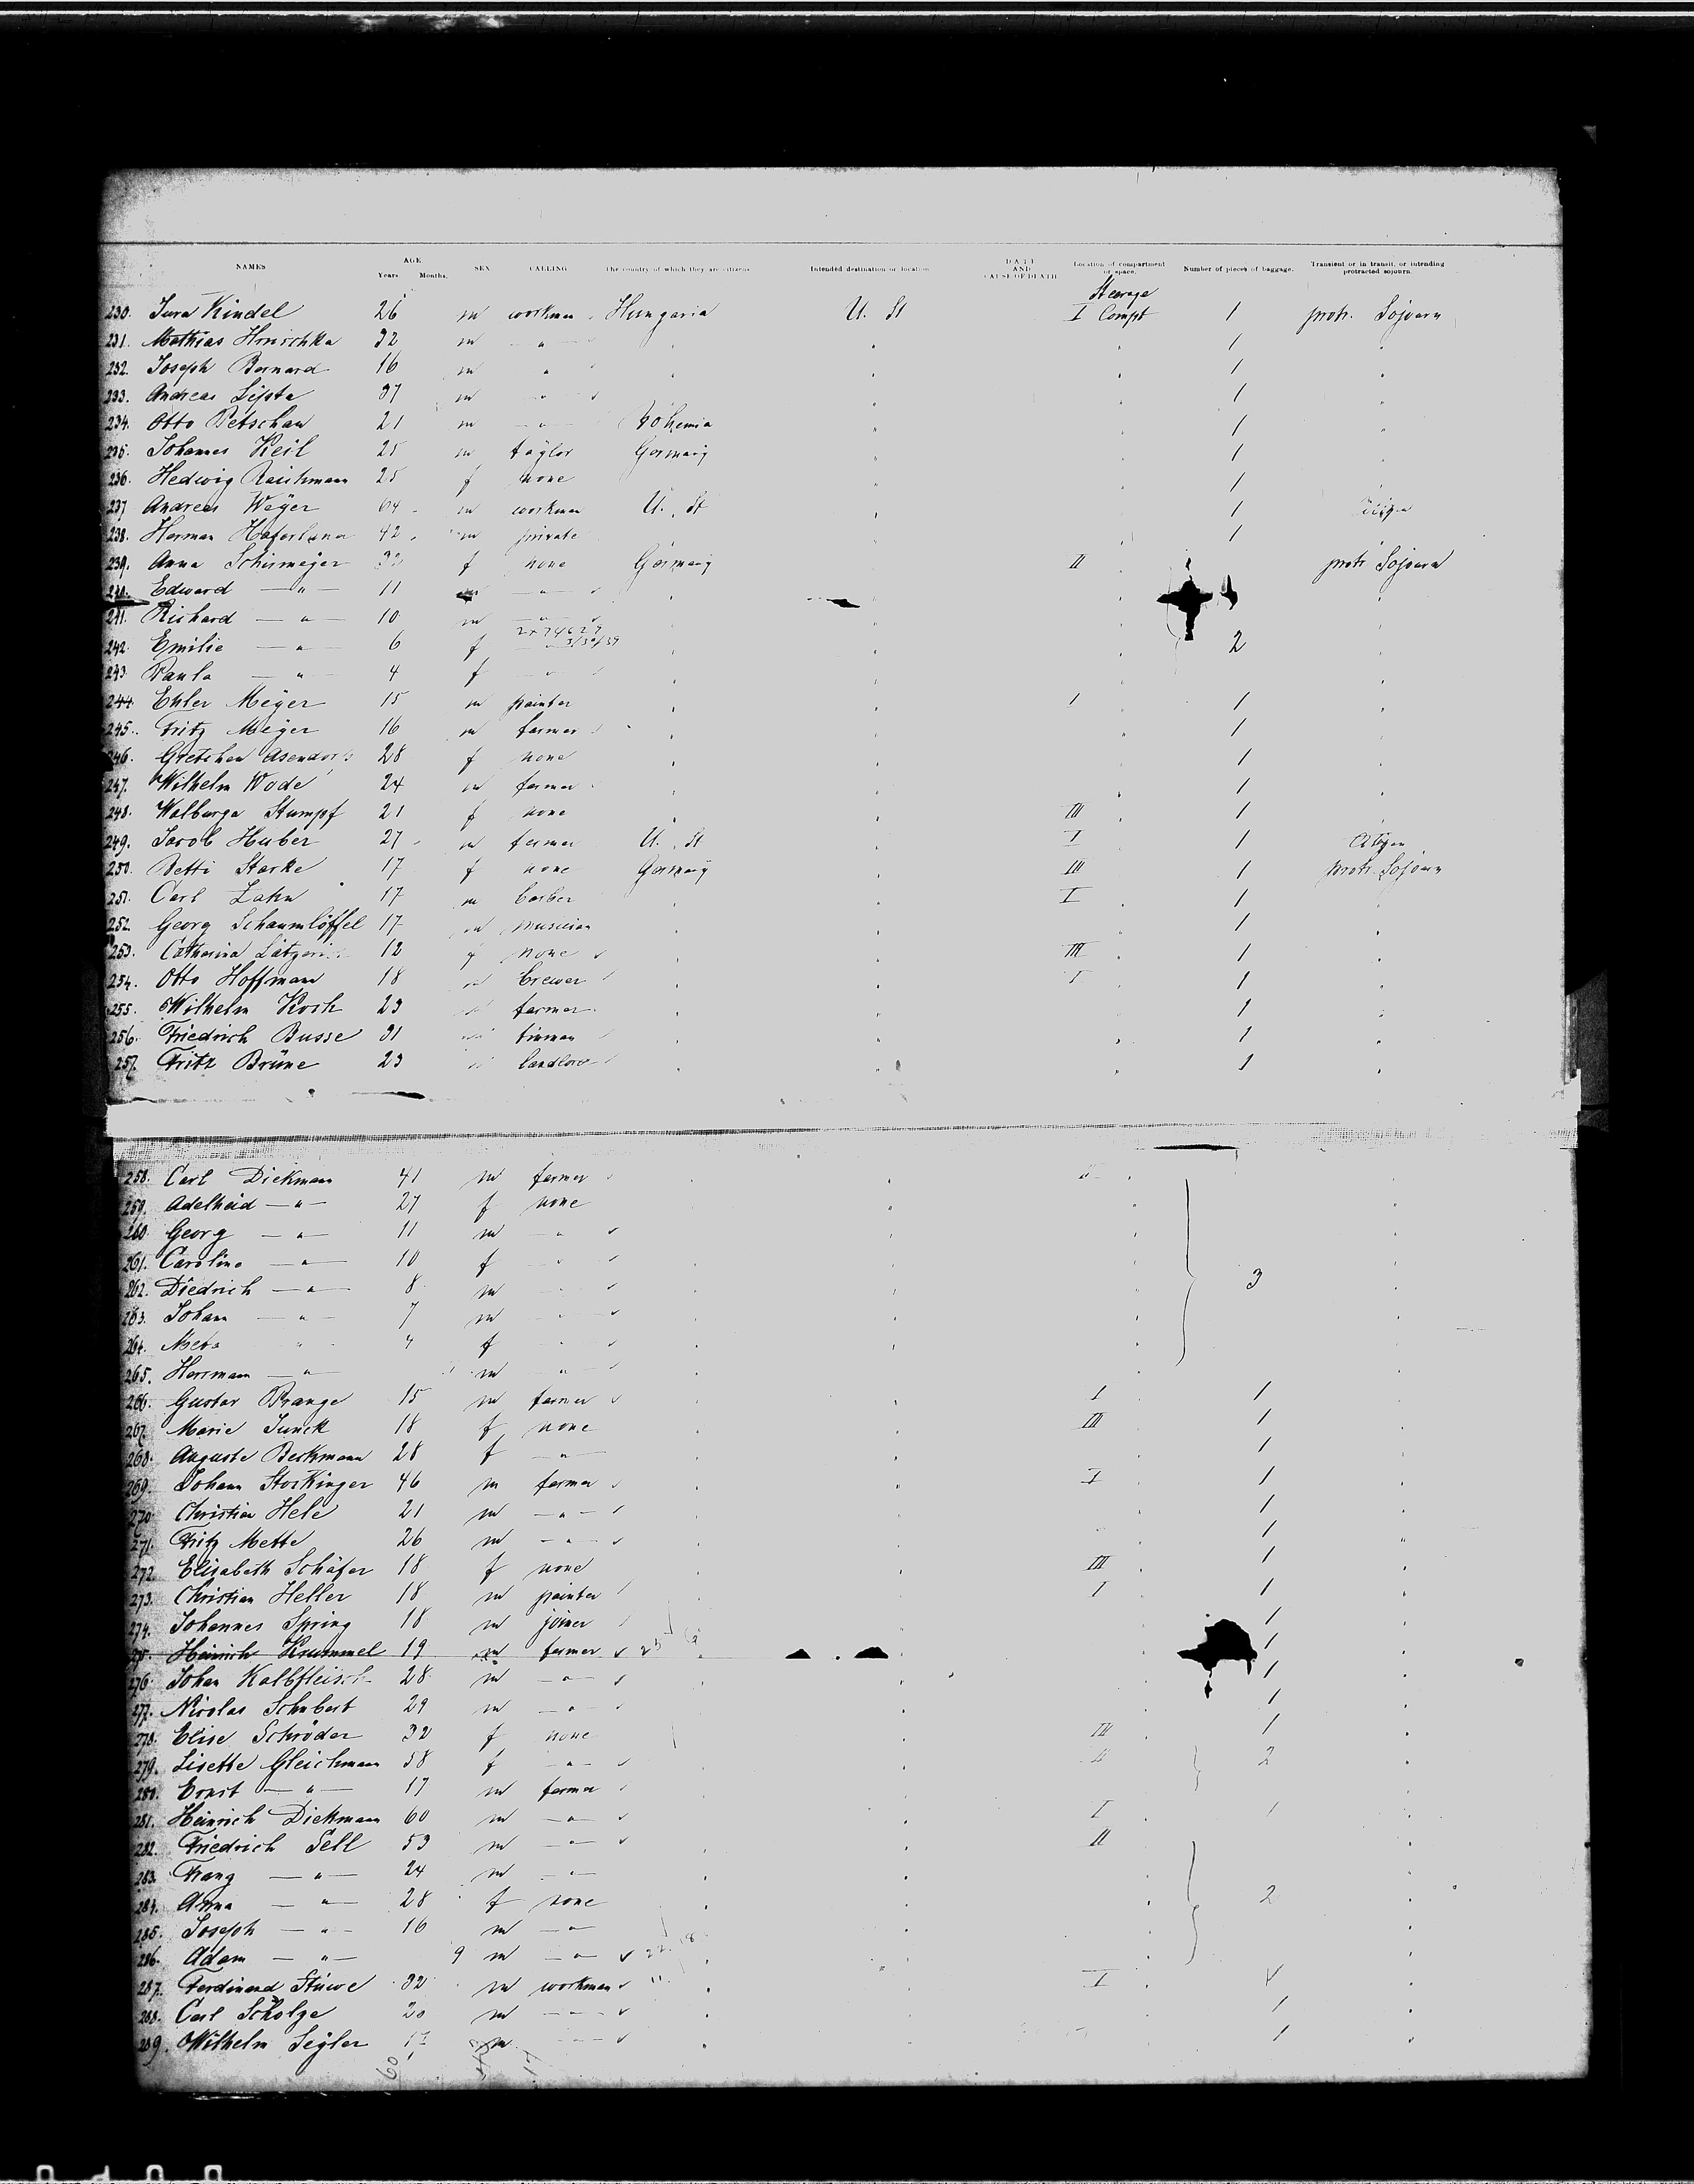 NAMES AGE Years Months. SEX CALLING The country of which they are citizens Intended destination or location DATE AND CAUSE OF DEATH Location of compartment or space. Number of pieces of baggage. Transient or in transit, or intending protracted sojourn.
Steerage
230. Kindel 26 m workman Hungaria U. St I Compt 1 protr. Sojourn
231. Mathias Hruschka 32 m " 1
232. Joseph Bernard 16 m " 1
233. Andreas Lipta 37 m " 1
234. Otto Petschau 21 m " Bohemia 1
235. Johannes Keil 25 m taylor Germany 1
236. Hedwig Reichmann 25 f none 1
237. Andreas Weyer 64 m workman U. St 1
238. Herman 42 m private 1
239. Anna Schirmeyer 32 f none Germany II protr Sojourn
240. Edward " 11 m " 4
241. Richard " 10 m "
242. Emilie " 6 f 2
243. Paula " 4 f "
244. Ehler Meyer 15 m painter I 1
245. Fritz Meyer 16 m farmer 1
246. Gretchen Asendorf 28 f none 1
247. Wilhelm Wode 24 m farmer 1
248. Walburga Stumpf 21 f none III 1
249. Jacob Huber 27 m farmer U. St I 1 Citizen
250. Betti Starke 17 f none Germany III 1 protr. Sojourn
251. Carl Zahn 17 m barber I 1
252. Georg Schaumlöffel 17 m musician 1
253. Catharina 12 f none III 1
254. Otto Hoffmann 18 m brewer I 1
255. Wilhelm Koch 23 m farmer 1
256. Friedrich Busse 31 m tinman 1
257. Fritz Brüne 23 m landlord 1
258. Carl Diekmann 41 m farmer II
259. Adelheid " 27 f none
260. Georg " 11 m "
261. Caroline " 10 f "
262. Diedrich " 8 m " 3
263. Johann " 7 m "
264. Meta " 4 f "
265. Herrmann " m "
266. Gustav Prange 15 m farmer I 1
267. Marie Junck 18 f none III 1
268. Auguste Beckmann 28 f " 1
269. Johann Stockinger 46 m farmer I 1
270. Christian Hele 21 m " 1
271. Fritz Mette 26 m " 1
272. Elisabeth Schäfer 18 f none III 1
273. Christian Heller 18 m painter I 1
274. Johannes Spring 18 m joiner 1
275. Heinrich Krummel 19 m farmer 1
276. Johan Kalbfleisch 28 m " 1
277. Nicolas Schubert 29 m " 1
278. Elise Schröder 32 f none III 1
279. Lisette Gleichmann 58 f " II 2
280. Ernst " 17 m farmer
281. Heinrich Diekmann 60 m " I 1
282. Friedrich Sell 53 m " II
283. Franz " 24 m "
284. Anna " 28 f none 2
285. Joseph " 16 m "
286. Adam " 9 m "
287. Ferdinand Stüwe 32 m workman I 1
288. Carl Scholze 20 m " 1
289. Wilhelm Segler 17 m " 1